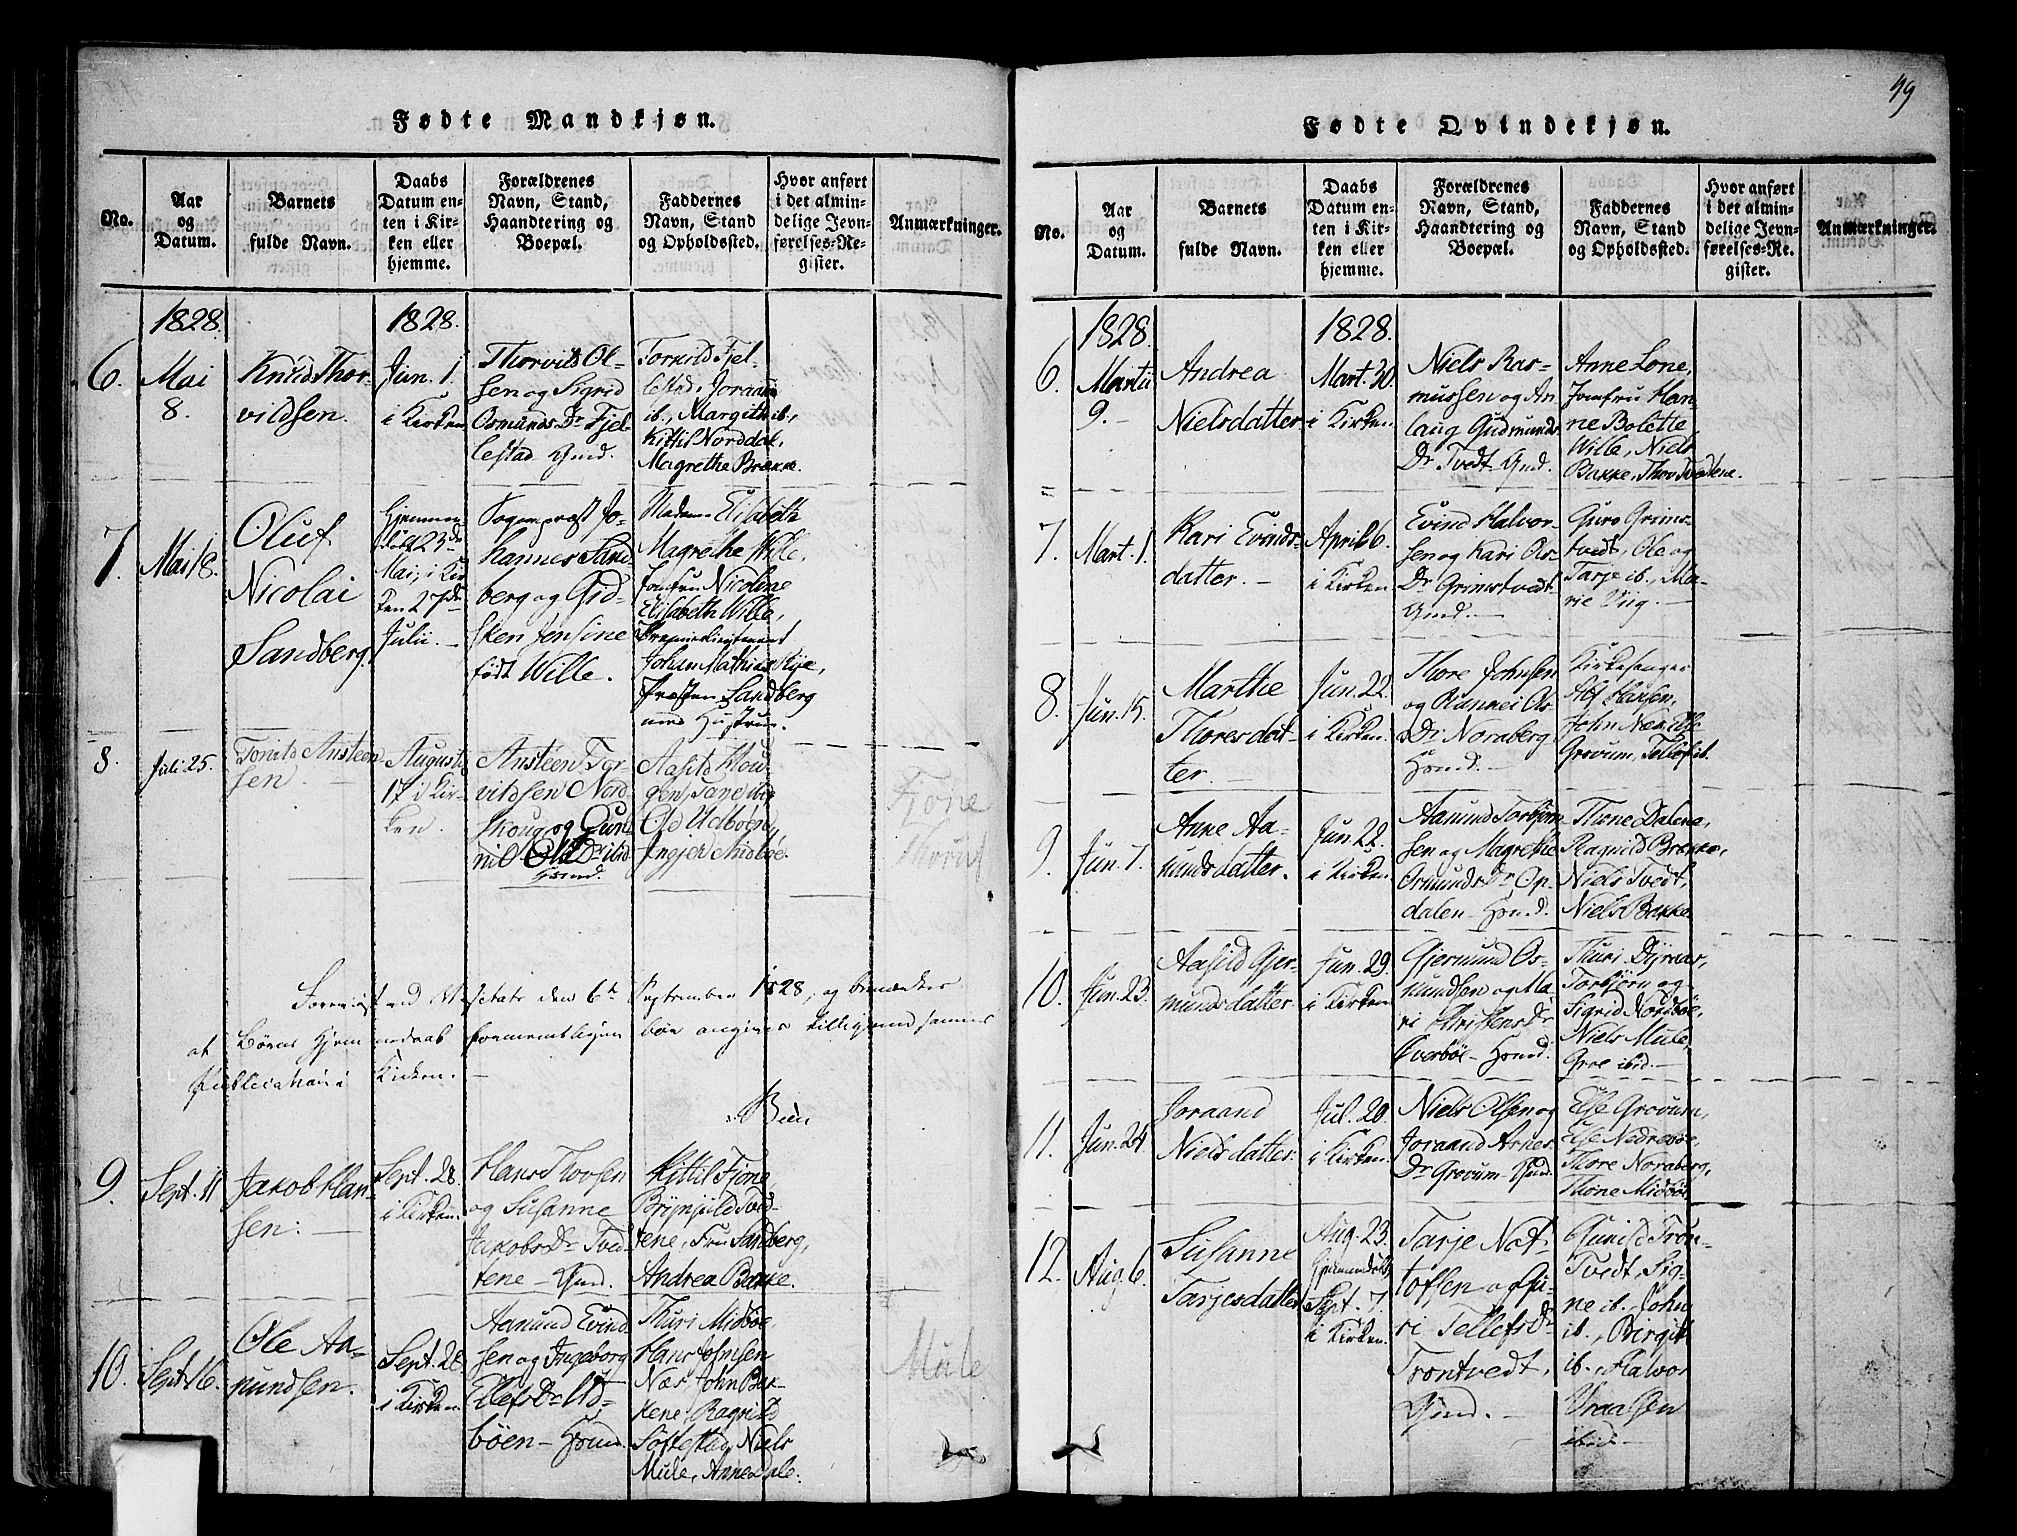 49
Fødte Mandkjøn.
No.
Aar
og
Datum.
Barnets
fulde Navn.
Daabs
Datum en-
ten i Kir-
ken eller
hjemme.
Forældrenes
Navn, Stand,
Haandtering og
Boepæl.
Faddernes
Navn, Stand
og Opholdssted.
Hvor anført
i det almin-
delige Jevn-
førelses-Re-
gister.
Anmærkninger.
1828.
1828.
6.
Mai
8.
Knud Thor-
vildsen.
Jun. 1.
i Kirken
Thorvild Ol-
sen og Sigrid
Osmunds Dr Fjel-
lestad Gmd.
Torkild Fjel-
lestad, Joraand
ib., Margith ib.,
Kittil Norddal,
Magrethe Brække.
7.
Mai 18.
Oluf
Nicolai
Sandberg.
Hjemme-
døbt 23de
Mai, i Kir-
ken 27de
Julii.
Sogneprest Jo-
hannes Sand-
berg og Gid-
sken Jensine
født Wille.
Madam Elisabeth
Magrethe Wille,
Jomfru Nicoline
Elisabeth Wille,
Premierlieutenant
Johan Mathias Rye,
Præsten Sandberg
med Hustrue.
8.
Juli 25.
Torvild Ansteen-
sen.
August
17 i Kir-
ken.
Ansteen Tor-
vildsen Nord-
skoug og Gun-
nil Ols Dr ibid
Hsmd.
Aasild Hou-
gen, Tane ibid
Ole Udboen,
Ingjer Midbøe.
Fjone
Thorus
ved Visitats den 6te September 1828, og bemærkes
at Børns Hjemmedaab bør angives tilligemed sammes
Publication i Kirken.
Bue
9.
Sept. 11
Jakob Han-
sen.
Sept. 28.
i Kirken.
Hans Thorsen
og Susanne
Jakobs Dr Tved-
tene Gmd.
Kittil Fjone,
Brynjuld Tved-
tene, Fru Sandberg,
Andrea Bakke.
10.
Sept. 16.
Ole Aa-
nundsen.
Sept. 28
i Kirken.
Aanund Evind-
sen og Ingeborg
Tellefs Dr Ud-
bøen Hsmd.
Thuri Midbøe,
Hans Johnsen
Næs, John Bak-
kene, Ragnild
Søftestad, Niels
Mule, Anne Dale.
Mule
Fødte Qvindekjøn.
No.
Aar
og
Datum.
Barnets
fulde Navn.
Daabs
Datum en-
ten i Kir-
ken eller
hjemme.
Forældrenes
Navn, Stand,
Haandtering og
Boepæl.
Faddernes
Navn, Stand
og Opholdssted.
Hvor anført
i det almin-
delige Jevn-
førelses-Re-
gister.
Anmærkninger.
1828.
1828.
6.
Martii
9.
Andrea
Nielsdatter
Mart. 30.
i Kirken
Niels Ras-
mussen og An-
laug Gudmunds
Dr Tvedt Gmd.
Anne Lone,
Jomfru Han-
ne Bolette
Wille, Niels
Bakke, Thor Tvedtene.
7.
Mart. 1.
Kari Evinds-
datter.
April 6.
i Kirken
Evind Halvor-
sen og Kari Ols
Dr Grimstvedt
Gmd.
Guro Grims-
tvedt, Ole og
Tarje ib., Ma-
rie Viig.
8.
Jun. 15.
Marthe
Thoresdat-
ter.
Jun. 22.
i Kirken.
Thore Johnsen
og Rannei Ols
Dr Noraberg
Hsmd.
Kirkesanger
Alf Hansen,
John Næs, Else
Grovum, Tellef ib.
9.
Jun. 7.
Anne Aa-
nundsdatter.
Jun. 22.
i Kirken
Aanund Torbjørn-
sen og Magrethe
Osmunds Dr Op-
dalen Hsmd.
Thone Dalena,
Ragnild Brække,
Niels Tvedt,
Niels Bakke.
10.
Jun. 23.
Aasild Gjer-
mundsdatter
Jun. 29.
i Kirken
Gjermund Os-
mundsen og Ma-
ri Christens Dr
Øverbøe Hsmd.
Thuri Dyraas,
Torbjørn og
Sigrid Nordbøe,
Niels Mule,
Groe ibid.
11.
Jun. 24
Joraand
Nielsdatter.
Jul. 20.
i Kirken.
Niels Olsen og
Joraand Arnes
Dr Grovum Gmd.
Else Grovum,
Else Nedrebøe,
Thore Noraberg,
Thone Midbøe
12.
Aug. 6.
Susanne
Tarjesdatter
Aug. 23.
Hjemmedøbt,
Sept. 7.
i Kirken.
Tarje Not-
tofsen og Gu-
ri Tellefs Dr
Trontvedt,
Gmd.
Gunild Tron-
tvedt, Sig-
ne ib., John
ib., Birgit
ib., Halvor
Vraalsen
ibid.